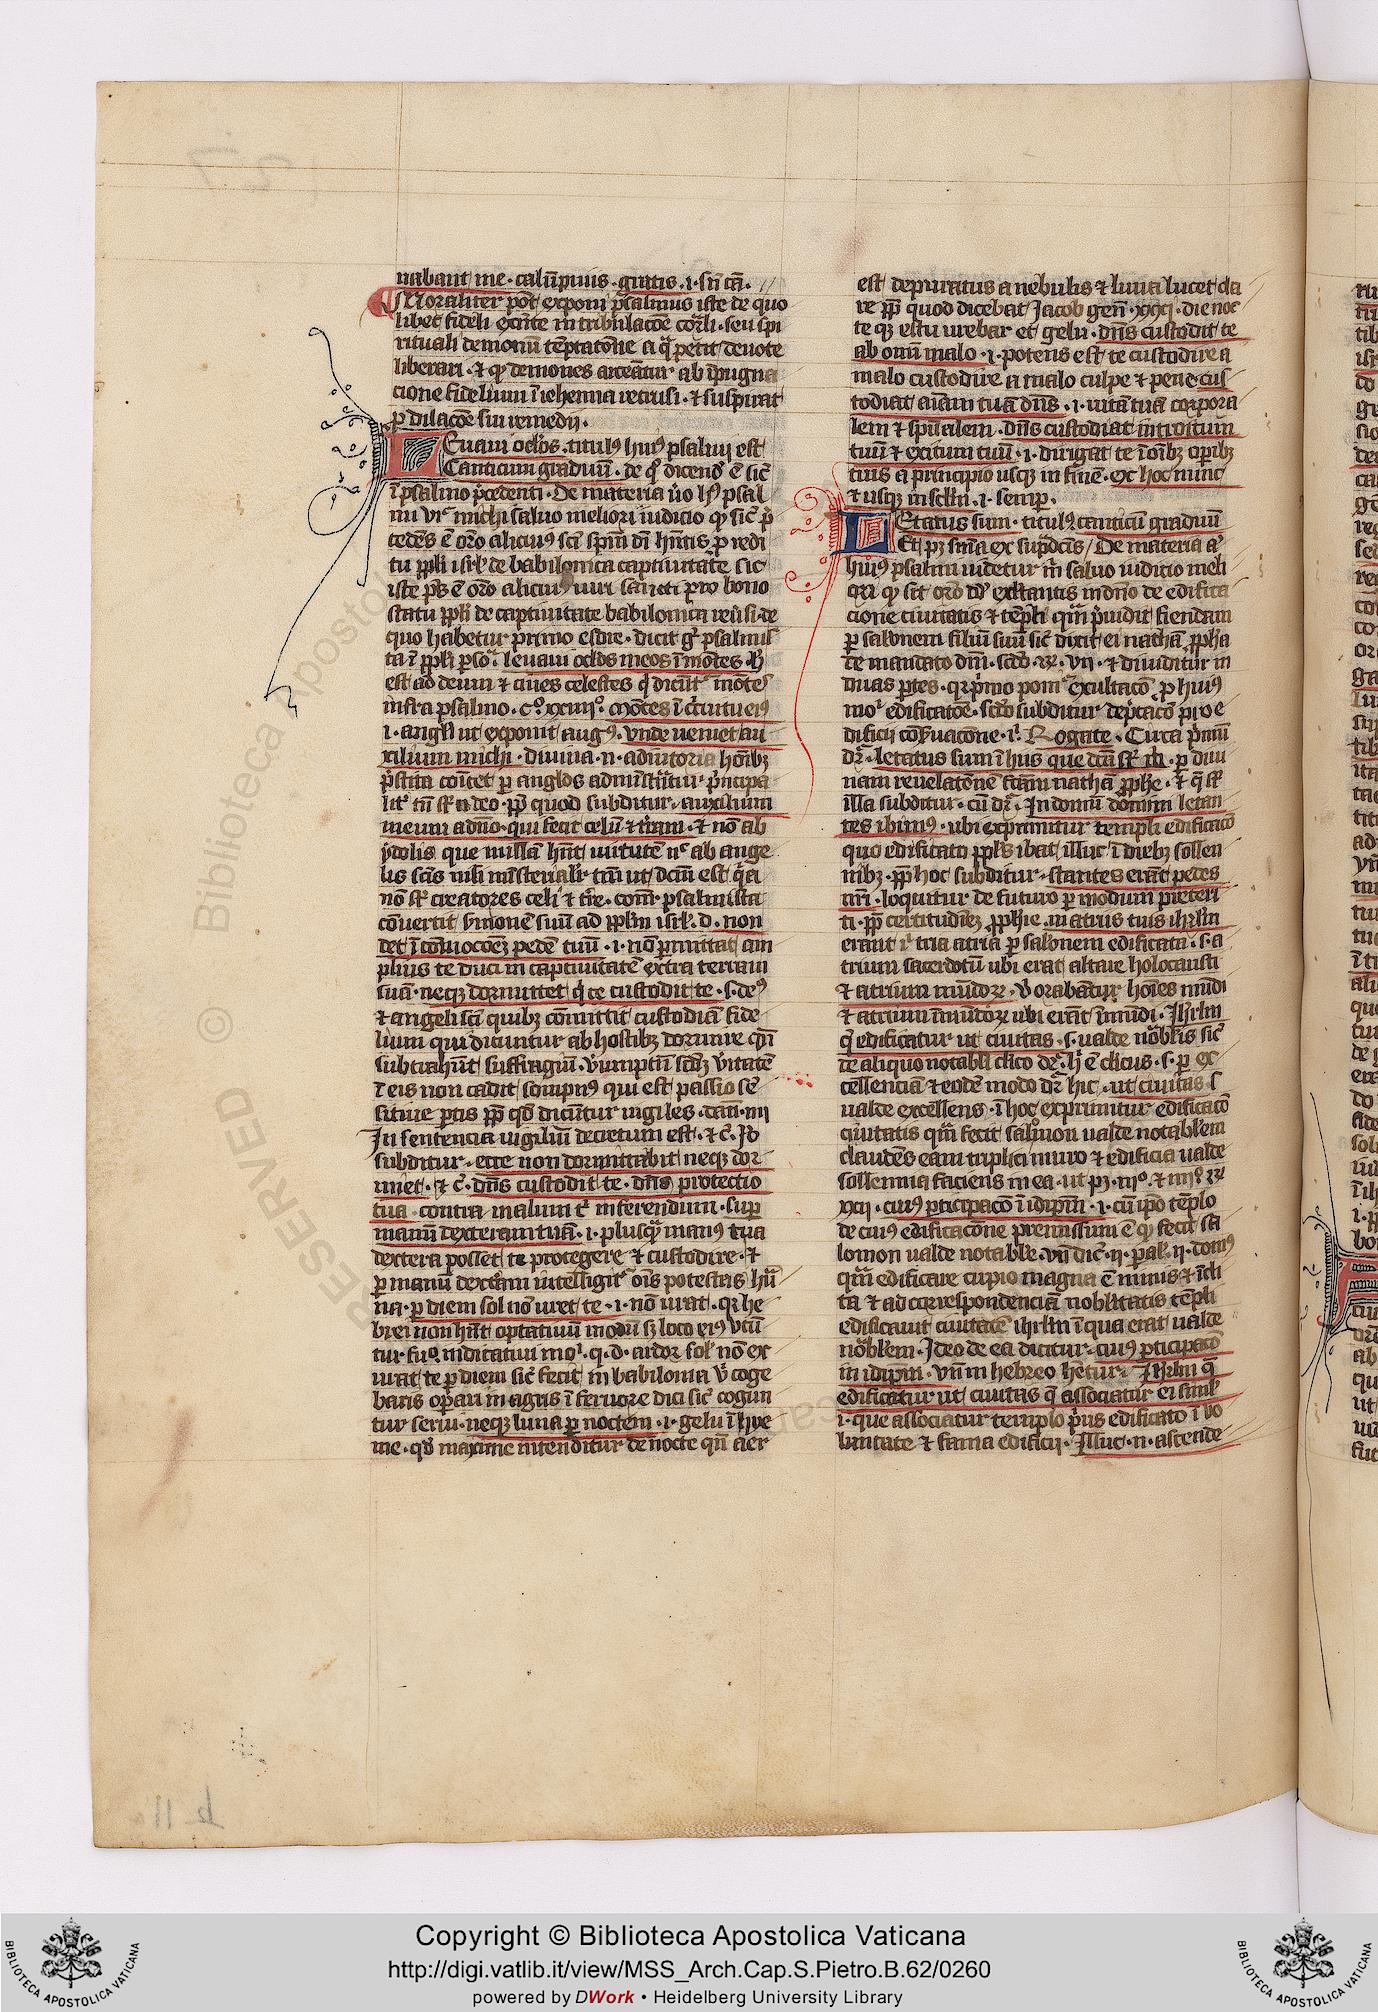 nabant me · calūpniis · gratis · i · sn̄ cā ·
Moraliter pōt exponi psalmus iste de quo
libet fideli existēte in tribulacōe corꝑali · seu spi
rituali demonū tēptatōne a q̄ petit deuote
liberari · ⁊ qꝫ demones arceāntur ab īpugna
cione fidelium ī iehenna retrusi · ⁊ suspirat
ꝑ dilacōe sui remedij ·
Leuaui oclōs · titulꝰ huiꝰ psalmi est
Canticum graduū · de qͦ dicendū ē sic̄
ī psalmo p̄cedenti · De materia ūo hꝰ psal
mi vr̄ michi saluo meliori iudicio qꝫ sic̄ p̄
cedēs ē orō alicuiꝰ sc̄i spm̄ dn̄i hn̄tis pro redi
tu ppl̄i isrl̄ de babilonica captiuitate sic
iste p̄s ē orō alicuiꝰ uiri sancti pro bono
statu ppl̄i de captiuitate babilonica reūsi · de
quo habetur primo esdre · dicit gͦ psalmis
ta ī ppl̄i ꝑsōa · leuaui oclōs meos ī mōtes · hͦ
est ad deum ⁊ ciues celestes q̄ dicūtr̄ mōtes
infra psalmo · cͦ · xxiiijͦ · Mōtes ī c̄cuitu eiꝰ
i · angl̄i ut exponit augꝰ · vnde ueniet au
xilium michi · diuina · n · adiutoria hōibꝫ
p̄stita cōiter ꝑ anglos administr̄tur p̄ncipa
lit̄ tn̄ st̄ a deo · ppͣ quod subditur · auxilium
meum a dn̄o · qui fecit celū ⁊ tr̄am · ⁊ nō ab
ydolis que nullā hn̄t uirtutē nͨ ab ange
lis sc̄is nisi mīsterialr̄ tm̄ ut dc̄m est q̄a
nō st̄ creatores celi ⁊ tr̄e · comͣ · psalmista
cōuertit smonē suū ad ppl̄m isrl̄ · d · non
det ī cōmocōeꝫ pedē tuū · i · nō ꝑmittat am
plius te duci in captiuitatē extra terram
suā · neqꝫ dormitet q̄ te custodit te · s · deꝰ
⁊ angeli sc̄i quibꝫ cōmittit custodiā fide
lium qui dicuntur ab hostibꝫ dormire qn̄
subtrahūt suffragiū ·
ī eis non cadit sompnꝰ qui est passio sē
sitiue ꝑtis ppͣ qd̄ dicūtur uigiles · dan̄ · iiij
In sentencia uigiliū decretum est · ⁊ c̄ · Iō
subditur · ecce non dormitabit neqꝫ dor
miet · ⁊ c̄ · dn̄s custodit te · dn̄s protectio
tua contra malum t̄ inferendum · suꝑ
manū dexteram tuā · i · plusqͣ̄ manꝰ tua
dextera posset te protegere ⁊ custodire · ⁊
ꝑ manū dextām intelligitr̄ oīs potestas hū
na · ꝑ diem sol nō uret te · i · nō urat · qr̄ he
brei non hn̄t optatiuū modū sꝫ loco eiꝰ vtū
tur futͦ indicatiui moͥ · q · d · ardor solͥ nō ex
urat te ꝑ diem sic̄ fecit in babilonia vͥ coge
baris oꝑari in agris ī feruore diei sic̄ cogun
tur serui · neqꝫ luna ꝑ noctem · i · gelu ī hye
me · qd̄ maxime intenditur de nocte qn̄ aer
est depuratus a nebulis ⁊ luna lucet cla
re ppͣ quod dicebat Jacob gen̄ · xxxj · die noc
te qꝫ estu urebar et gelu · dn̄s custodit te
ab omī malo · i · potens est te custodire a
malo custodire a malo culpe ⁊ pene cus
todiat aīam tuā dn̄s · i · uitā tuā corpora
lem ⁊ spūalem · dn̄s custodiat introitum
tuū ⁊ exitum tuū · i · dirigat te ī oībꝫ oꝑibꝫ
tuis a principio usqꝫ in finē · ex hoc nunc
⁊ usqꝫ in sclm̄ · i · semꝑ ·
Letatus sum · titulꝰ canticū graduū
Et pꝫ sn̄ia ex supͣdcīs / De materia aͥ
huiꝰ psalmi uidetur m̄ saluo iudicio meli
ori qꝫ sit orō dd̄ exltantis in dn̄o de edifica
cione ciuitatis ⁊ tēpli qm̄ p̄uidit fiendam
ꝑ salonem filiū suū sic̄ dixit ei nathā ꝓpha
de mandato dn̄i · scdō · rͤ · vij · ⁊ diuiditur in
duas ꝑtes · qr̄ pͥmo ponitr̄ exultacō ꝓ huiꝰ
moͥ edificatōe · scdō subditur dep̄cacō ꝓ ei e
dificij cōsuacōne · iͥ · Rogate · Circa pͥmū
dr̄ · letatus sum ī hijs que dcā st̄ m̄ · ꝑ diui
nam reuelatōnē fc̄am nathā ꝓphe · ⁊ q̄ st̄
illa subditur · cū dr̄ · In domū domini letan
tes ibimꝰ · ubi exprimitur templi edificacō
quo edificato ppl̄s ibat illuc ī diebꝫ sollen
nibꝫ · ppͣ hoc subditur · stantes erāt pedes
nr̄i · loquitur de futuro ꝑ modum preteri
ti · ppͣ certitudinē ꝓphie · in atrijs tuis ihrlm̄
erant iͥ tria atria ꝑ salonem edificata · s · a
trium sacerdotū ubi erat altare holocausti
⁊ atrium mūdoꝝ · vͥ orabātur hoīes mūdi
⁊ atrium īmūdoꝝ ubi erāt īmūdi · Ihrlm̄
q̄ edificatur ut ciuitas · s · ualde nōbilis sic̄
de aliquo notabili clīco dr̄ · hͥ ē clīcus · s · ꝑ ex
cellenciā ⁊ eodē modo dr̄ hic · ut ciuitas · s
ualde excellens · ī hoc exprimitur edificacō
ciuitatis qm̄ fecit salomon ualde notabl̄em
claudēs eam triplici muro ⁊ edificia ualde
sollennia faciens in ea · ut pꝫ · iijͦ · ⁊ iiijͦ · rͤ
xxij · cuiꝰ ꝑticipacō ī idipm̄ · i · cū ipō tēplo
de cuius edificacōne premissum ē qꝫ fecit sa
lomon ualde notable · vn̄ dic̄ · ij · pal · ij · domꝰ
qm̄ edificare cupio magna ē nimis ⁊ īcli
ta ⁊ ad correspondenciā nobilitatis tēpli
edificauit ciuitatē ihrlm̄ ī qua erat ualde
nōbl̄em · Ideo de ea dicitur · cuiꝰ ꝑticipacō
in idipm̄ · vn̄ in hebreo hētur · Ihrlm̄ q̄
edificatur ut ciuitas q̄ associatur ei simlͥ
i · que associatur templo p̄us edificato ī bo
nitate ⁊ fama edificij · Illuc · n · ascende
© Biblioteca Apostolica
RESERVED
Copyright © Biblioteca Apostolica Vaticana
http://digi.vatlib.it/view/MSS_Arch.Cap.S.Pietro.B.62/0260
powered by DWork • Heidelberg University Library
BIBLIOTECA APOSTOLICA VATICANA
BIBLIOTECA APOSTOLICA VATICANA